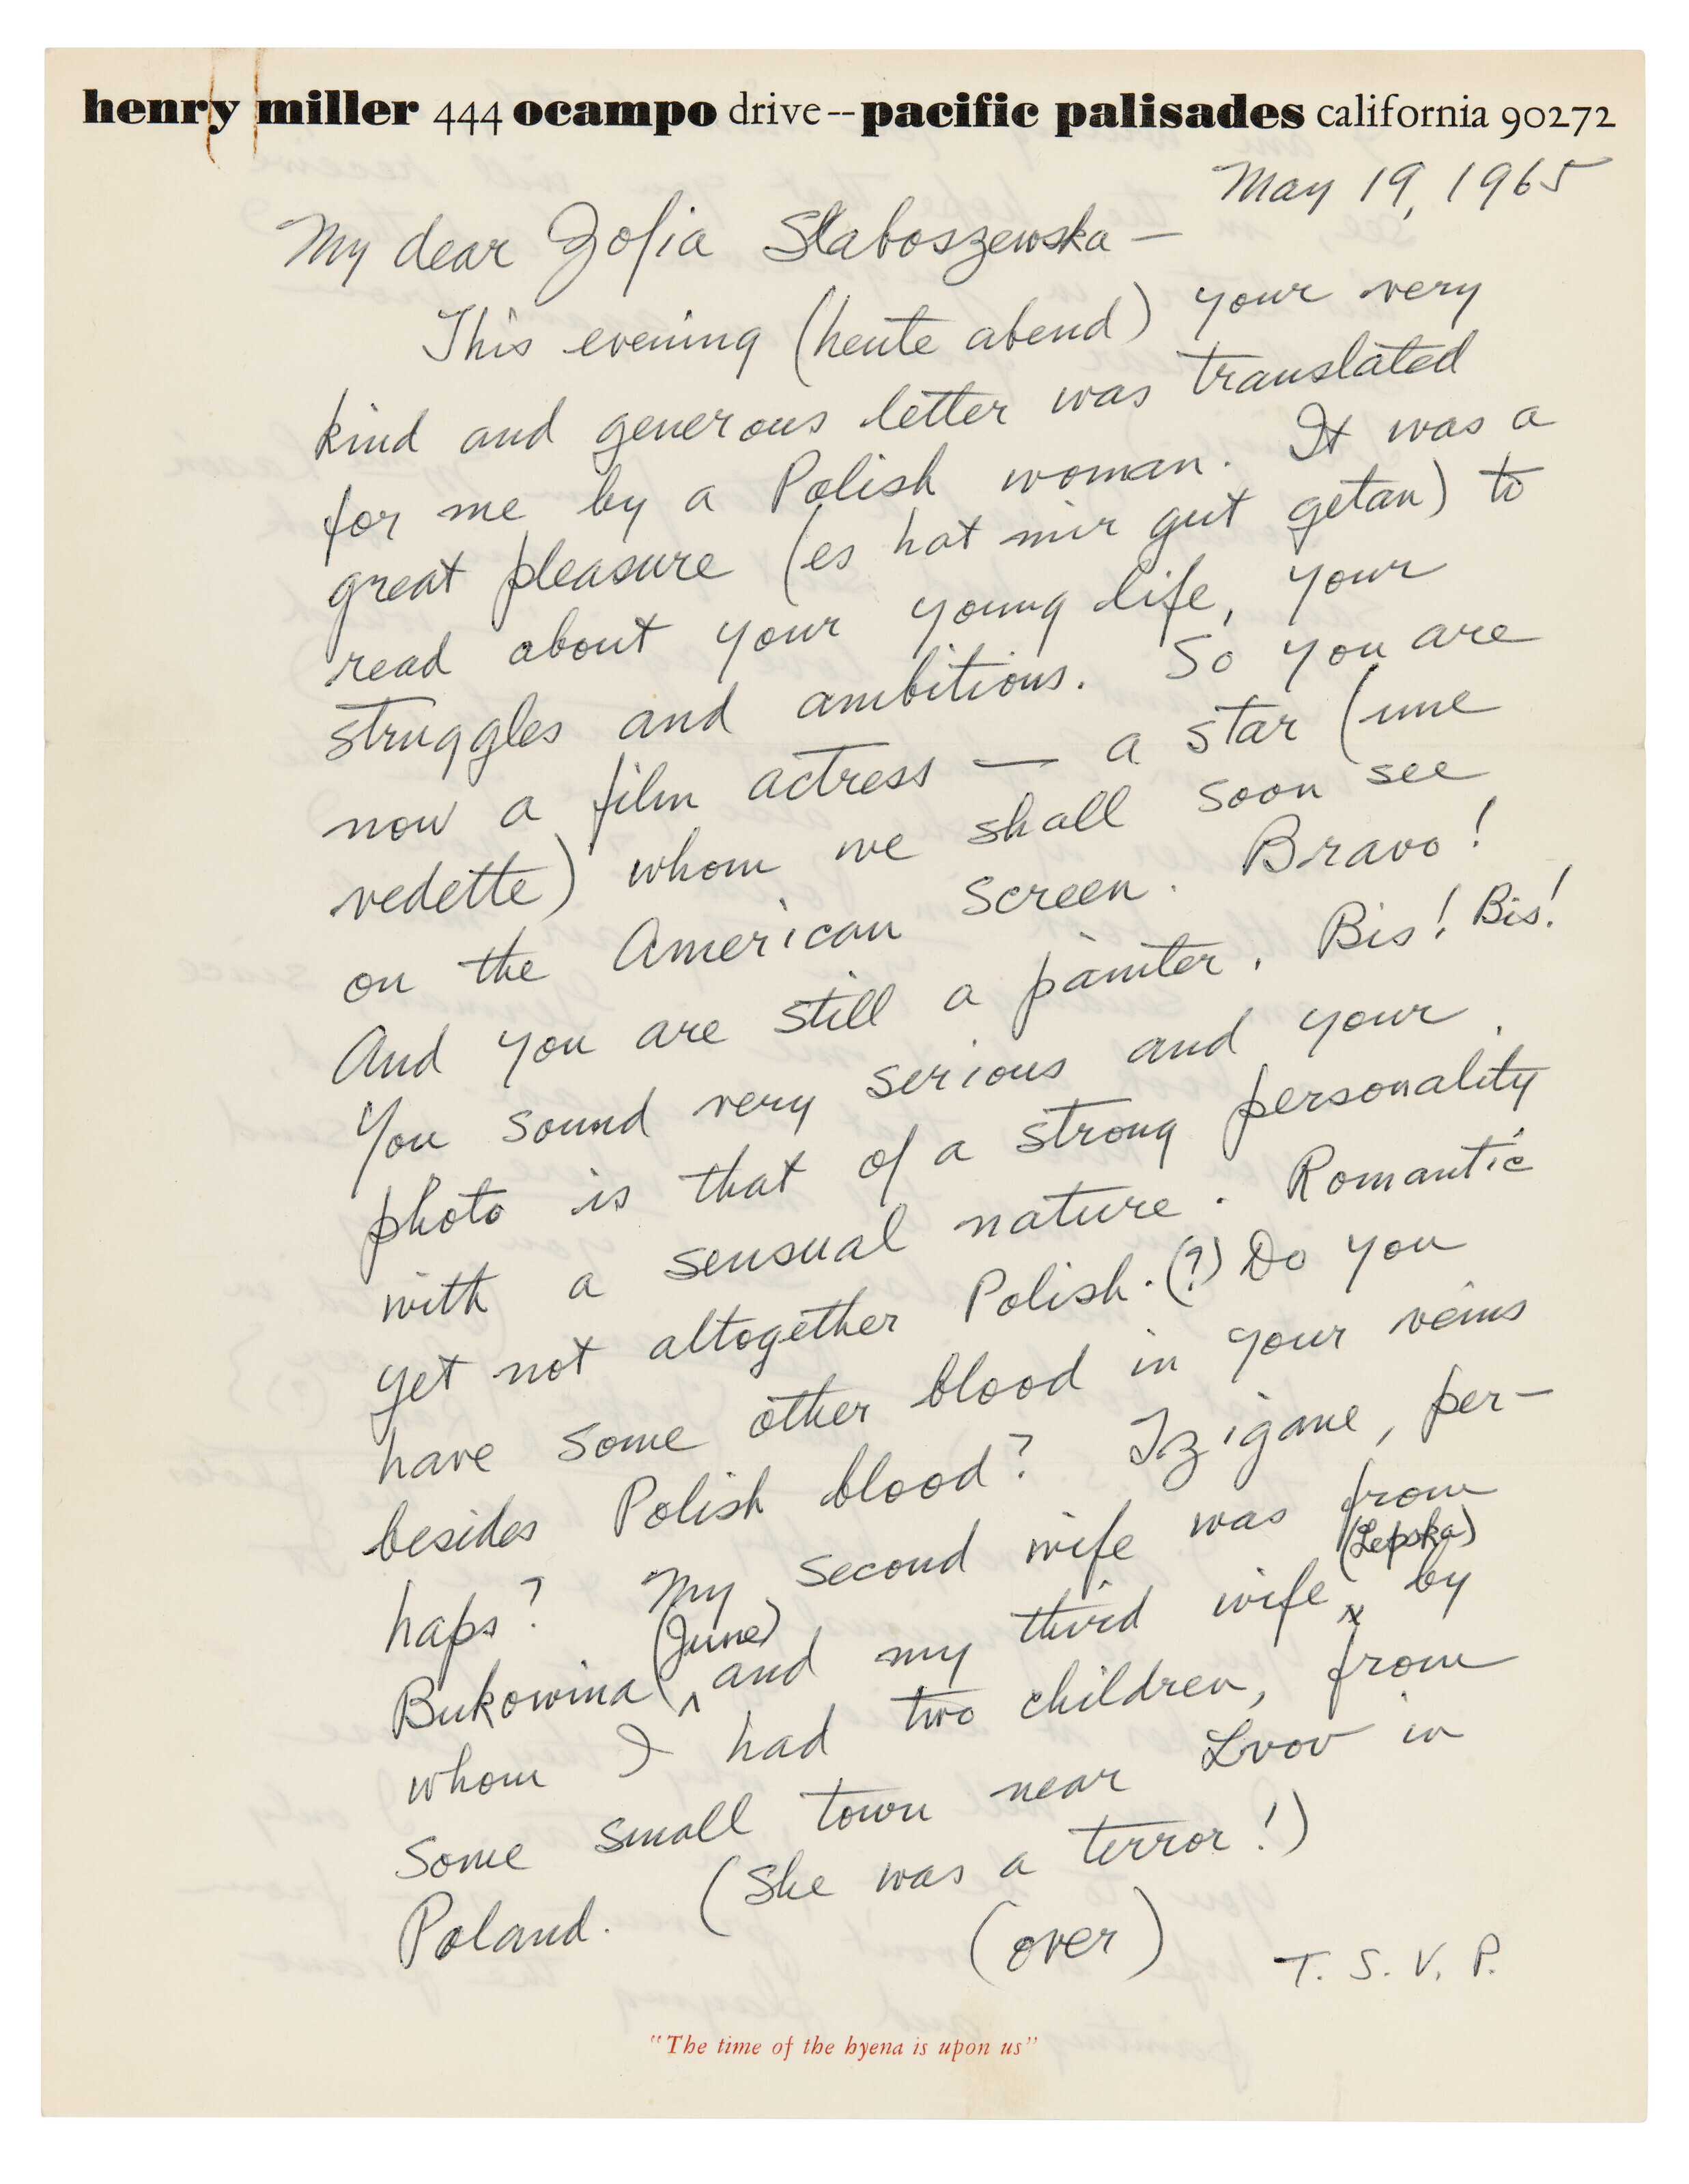 henry miller 444 ocampo drive -- pacific palisades california 90272
May 19, 1965
My dear Zofia Słaboszewska —
This evening (heute abend) your very
kind and generous letter was translated
for me by a Polish woman. It was a
great pleasure (es hat mir gut getan) to
read about your young life, your
struggles and ambitions. So you are
now a film actress — a star (une
vedette) whom we shall soon see
on the American screen. Bravo!
And you are still a painter. Bis! Bis!
You sound very serious and your
photo is that of a strong personality
with a sensual nature. Romantic
yet not altogether Polish. (?) Do you
have some other blood in your veins
besides Polish blood? Tzigane, per-
haps? My second wife was from
Bukowina (June) and my third wife (Lepska) by
whom I had two children, from
some small town near Lvov in
Poland. (She was a terror!)
(over) T. S. V. P.
"The time of the hyena is upon us"